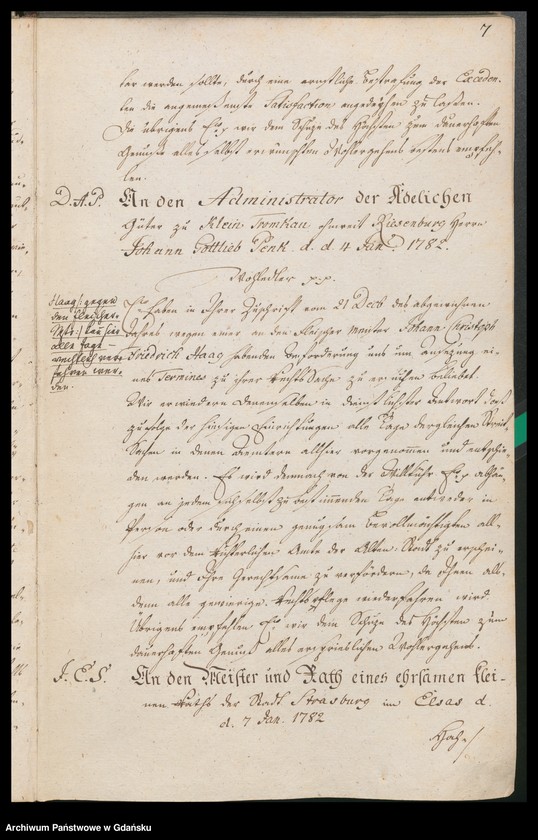 7
ler werden sollte, durch eine ernstliche Bestrafung der Exceden-
ten die angemeßenste Satisfaction angedeyhen zu laßen.
Die übrigens wir dem Schuze des Höchsten zum dauerhaften
Genuße alles selbst erwünschten Wohlergehens bestens empfeh-
len.
D. A. P. An den Administrator der Adelichen
Güter zu Klein Tromnau ohnweit Riesenburg Herrn
Johann Gottlieb Penk d. d. 4 Jan. 1782.
Wohledler p. p.
Haag: gegen
den Fleischer-
alle Tage
rechtlich ver-
fahren wer-
den.
haben in Ihrer Zuschrift vom 21 Decb des abgewichenen
Jahres wegen einer an den Fleischer Meister Johann Christoph
Friedrich Haag habenden Anforderung uns um Ansezung ei-
nes Termines zu ihrer Rechts Sache zu ersuchen beliebet.
Wir erwiedern denenselben in dienstlichster Antwort daß
zufolge der hiesigen Einrichtungen alle Tage dergleichen Streit
Sachen in denen Aemtern allhier vorgenommen und entschie-
den werden. Es wird demnach von der Willkühr abhän-
gen an jedem selbst zu bestimmenden Tage entweder in
Person oder durch einen genugsam Bevollmächtigten all-
hier vor dem Richterlichen Amte der Alten Stadt zu erschei-
nen, und Ihre Gerechtsame zu verfördern, da Ihnen als-
denn alle Rechts Pflege wiederfahren wird
Übrigens empfehlen wir dem Schuze des Höchsten zum
dauerhaften Genuß alles ersprieslichen Wohlergehens.
J. E. S. An den Meister und Rath eines ehrsamen klei-
nen Raths der Stadt Strasburg im Elsas d.
d. 7 Jan. 1782
Hoch-
Archiwum Państwowe w Gdańsku